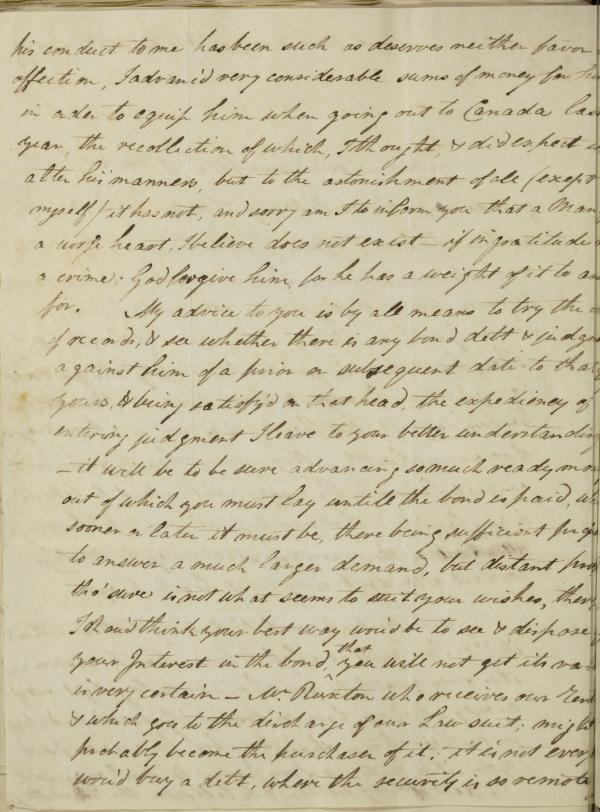 his conduct to me has been such as deserves neither favor
affection, I advanc'd very considerable sums of money for
in order to equip him when going out to Canada
year, the recollection of which, I thought, & did expect
alter his manners, but to the astonishment of all (except
myself) it has not, and sorry am I to inform you that a Man
a worse heart, I believe does not exist — if ingratitude
a crime; God forgive him, for he has a weight of it to
for. My advice to you is by all means to try the
of records, & see whether there is any bond debt &
against him of a prior or subsequent date to that
yours, & being satisfy'd on that head, the expediency of
entering judgment I leave to your better understanding
— it will be to be sure advancing so much ready
out of which you must lay untill the bond is paid,
sooner or later it must be, there being sufficient
to answer a much larger demand, but distant
tho' sure is not what seems to suit your wishes,
I shou'd think your best way wou'd be to see & dispose
your Interest in the bond, that you will not get its
is very certain — Mr Ruxton who receives our
& which goes to the discharge of our Law suit; might
probably become the purchaser of it, — it is not every
wou'd buy a debt, where the security is so remote